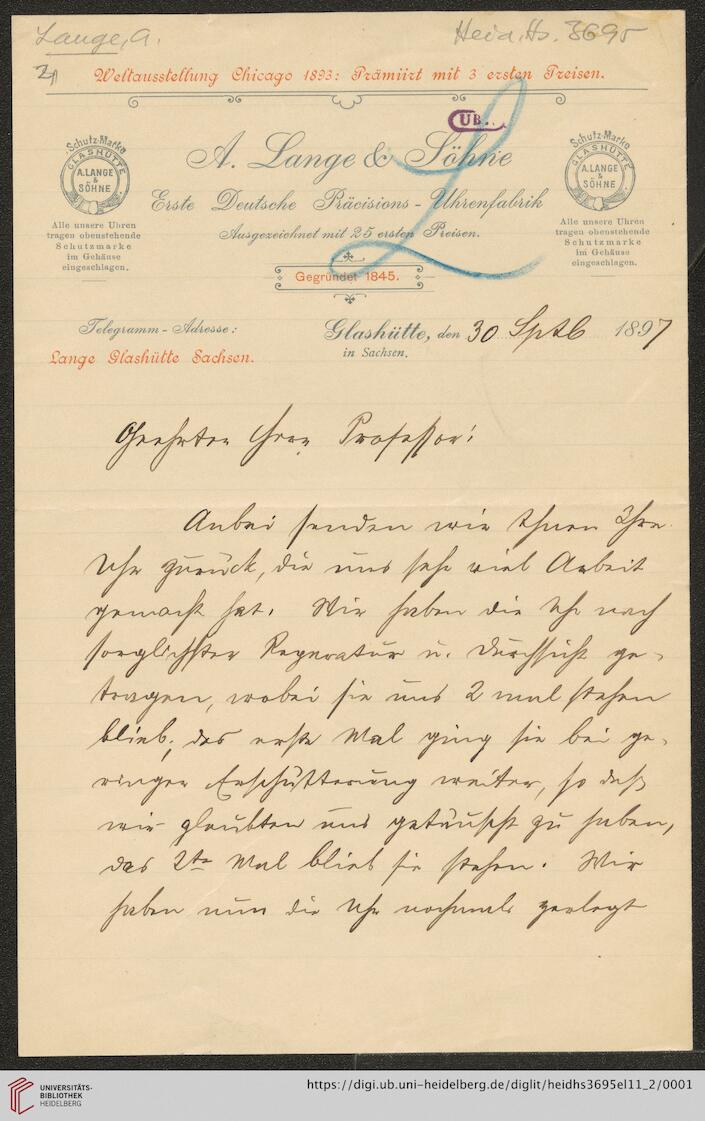 Lange, A.
Heid. Hs. 3695
Weltausstellung Chicago 1893: Prämiirt mit 3 ersten Preisen.
UB.
Schutz-Marke
GLASHÜTTE
A.LANGE
&
SÖHNE
Alle unsere Uhren
tragen obenstehende
Schutzmarke
im Gehäuse
eingeschlagen.
A. Lange & Söhne
Erste Deutsche Präcisions-Uhrenfabrik
Ausgezeichnet mit 25 ersten Preisen.
Gegründet 1845.
Schutz-Marke
GLASHÜTTE
A.LANGE
&
SÖHNE
Alle unsere Uhren
tragen obenstehende
Schutzmarke
im Gehäuse
eingeschlagen.
Telegramm-Adresse:
Lange Glashütte Sachsen.
Glashütte, den 30 Sptb 1897
in Sachsen.
Geehrter Herr Professor!
Anbei senden wir Ihnen Ihre
Uhr zurück, die uns sehr viel Arbeit
gemacht hat. Wir haben die Uhr nach
sorglichster Reparatur u. Durchsicht ge-
tragen, wobei sie uns 2 mal stehen
blieb; das erste Mal ging sie bei ge-
ringer Erschütterung weiter, so daß
wir glaubten uns getäuscht zu haben,
das 2te Mal blieb sie stehen. Wir
haben nun die Uhr nochmals zerlegt
UNIVERSITÄTS-
BIBLIOTHEK
HEIDELBERG
https://digi.ub.uni-heidelberg.de/diglit/heidhs3695el11_2/0001